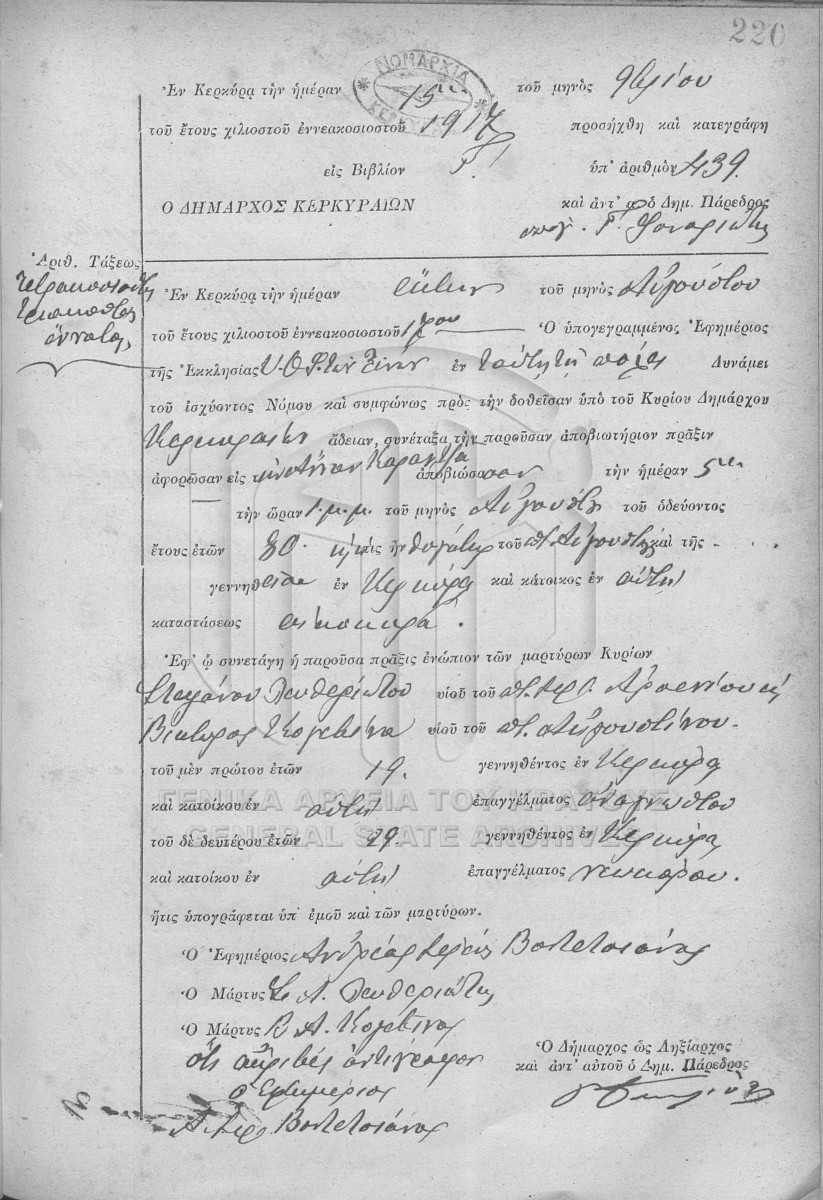 220
ΝΟΜΑΡΧΙΑ
ΚΕΡΚΥΡΑΣ
Ἐν Κερκύρᾳ τὴν ἡμέραν 15ην τοῦ μηνὸς 9βρίου
τοῦ ἔτους χιλιοστοῦ ἐννεακοσιοστοῦ 1917 προσήχθη καὶ κατεγράφη
εἰς Βιβλίον Γ' ὑπ' ἀριθμὸν 439.
Ὁ ΔΗΜΑΡΧΟΣ ΚΕΡΚΥΡΑΙΩΝ καὶ ἀντ' αὐτοῦ ὁ Δημ. Πάρεδρος
ὑπογ. Γ.
Ἀριθ. Τάξεως
τετρακοσιοστὸς
τριακοστὸς
ἔννατος
Ἐν Κερκύρᾳ τὴν ἡμέραν ἕκτην τοῦ μηνὸς Αὐγούστου
τοῦ ἔτους χιλιοστοῦ ἐννεακοσιοστοῦ 17ου Ὁ ὑπογεγραμμένος Ἐφημέριος
τῆς Ἐκκλησίας Υ. Θ. τῶν Ξένων ἐν ταύτῃ τῇ πόλει Δυνάμει
τοῦ ἰσχύοντος Νόμου καὶ συμφώνως πρὸς τὴν δοθεῖσαν ὑπὸ τοῦ Κυρίου Δημάρχου
Κερκυραίων ἄδειαν, συνέταξα τὴν παροῦσαν ἀποβιωτήριον πρᾶξιν
ἀφορῶσαν εἰς τὴν ἀποβιώσασαν τὴν ἡμέραν 5ην
τὴν ὥραν 1 μ.μ. τοῦ μηνὸς Αὐγούστου τοῦ ὁδεύοντος
ἔτους ἐτῶν 80 ἥτις ἦν θυγάτηρ τοῦ π. Αὐγούστου καὶ τῆς
γεννηθεῖσα ἐν Κερκύρᾳ καὶ κάτοικος ἐν αὐτῇ
καταστάσεως οἰκοκυρά.
Ἐφ' ᾧ συνετάγη ἡ παροῦσα πρᾶξις ἐνώπιον τῶν μαρτύρων Κυρίων
Στεφάνου Λευθεριώτου υἱοῦ τοῦ π. Ἀρσενίου καὶ
Βίκτωρος Κογεβίνα υἱοῦ τοῦ π. Αὐγουστίνου.
τοῦ μὲν πρώτου ἐτῶν 19. γεννηθέντος ἐν Κερκύρᾳ
καὶ κατοίκου ἐν αὐτῇ ἐπαγγέλματος ἀναγνώστου
τοῦ δὲ δευτέρου ἐτῶν 29. γεννηθέντος ἐν Κερκύρᾳ
καὶ κατοίκου ἐν αὐτῇ ἐπαγγέλματος νεωκόρου.
ἥτις ὑπογράφεται ὑπ' ἐμοῦ καὶ τῶν μαρτύρων.
Ὁ Ἐφημέριος Ἀνδρέας Ἱερεὺς Βολτετσιάνος
Ὁ Μάρτυς Σ. Α. Λευθεριώτης
Ὁ Μάρτυς Β. Α. Κογεβίνας
Ὅτι ἀκριβὲς ἀντίγραφον
Ὁ Ἐφημέριος
Α. Ἱερ. Βολτετσιάνος
Ὁ Δήμαρχος ὡς Ληξίαρχος
καὶ ἀντ' αὐτοῦ ὁ Δημ. Πάρεδρος
ΓΕΝΙΚΑ ΑΡΧΕΙΑ ΤΟΥ ΚΡΑΤΟΥΣ
GENERAL STATE ARCHIVES